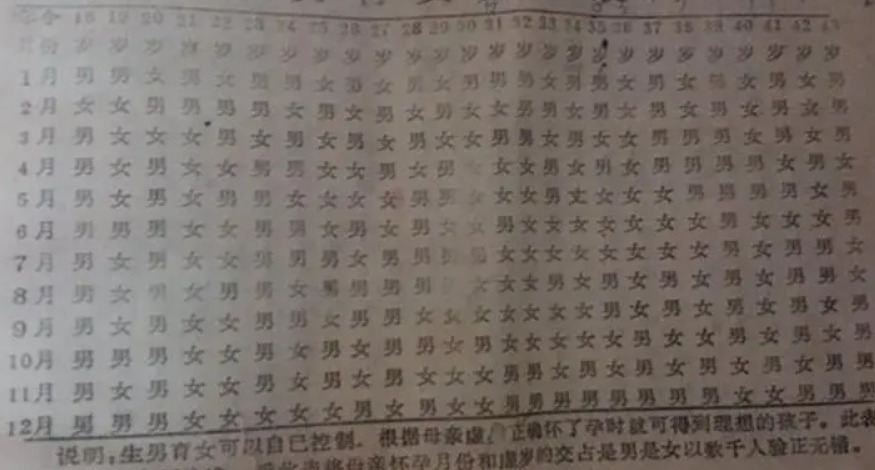 年令 18 19 20 21 22 23 24 25 26 27 28 29 30 31 32 33 34 35 36 37 38 39 40 41 42 43
月份 岁 岁 岁 岁 岁 岁 岁 岁 岁 岁 岁 岁 岁 岁 岁 岁 岁 岁 岁 岁 岁 岁 岁 岁 岁 岁
1月 男 男 女 男 女 男 男 女 男 女 男 女 男 男 男 女 男 男 女 男 女 男 女 男 女 男
2月 女 女 男 男 男 男 女 男 女 男 女 男 女 女 男 男 女 男 女 男 女 男 女 男 女 男
3月 男 女 女 女 男 女 男 女 男 女 男 女 女 男 男 女 男 女 女 男 男 男 女 男 女 男
4月 男 女 男 女 女 男 男 女 女 男 女 男 女 女 女 男 女 男 女 男 男 男 男 女 男 女
5月 男 女 男 女 男 男 女 女 女 女 男 男 女 女 女 男 女 女 女 女 男 男 男 男 女 男
6月 男 男 男 女 女 男 男 女 男 女 男 女 女 男 女 女 女 女 女 女 女 男 女 女 女 男
7月 男 女 男 女 女 男 男 男 女 男 男 男 男 女 女 女 女 女 女 女 女 男 女 男 男 女
8月 男 女 男 女 男 男 女 男 男 男 男 女 女 女 男 女 男 女 男 女 男 女 男 男 女
9月 男 女 男 女 女 男 男 女 男 男 女 女 女 女 女 女 女 男 女 男 女 男 女 男 女 男
10月 男 男 男 女 女 男 女 男 女 男 男 女 男 女 女 女 女 女 男 女 女 男 女 男 女 男
11月 男 女 男 女 女 男 女 男 女 男 女 女 女 男 男 女 男 女 男 女 男 女 男 女 男 男
12月 男 男 男 女 女 女 女 女 男 女 男 女 女 男 男 男 男 男 男 男 男 女 女 男 男 男
说明：生男育女可以自己控制．根据母亲虚 正确怀了孕时就可得到理想的孩子。此表
母亲怀孕月份和虚岁的交占是男是女以数千人验正无错。